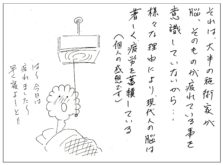 それは、大半の施術家が
脳そのものが疲れている事を
意識していないから…
様々な理由により現代人の脳は
著しく疲労を蓄積している
（個人の感想です）
はぁ 今日は
疲れました〜
早く寝よーっと